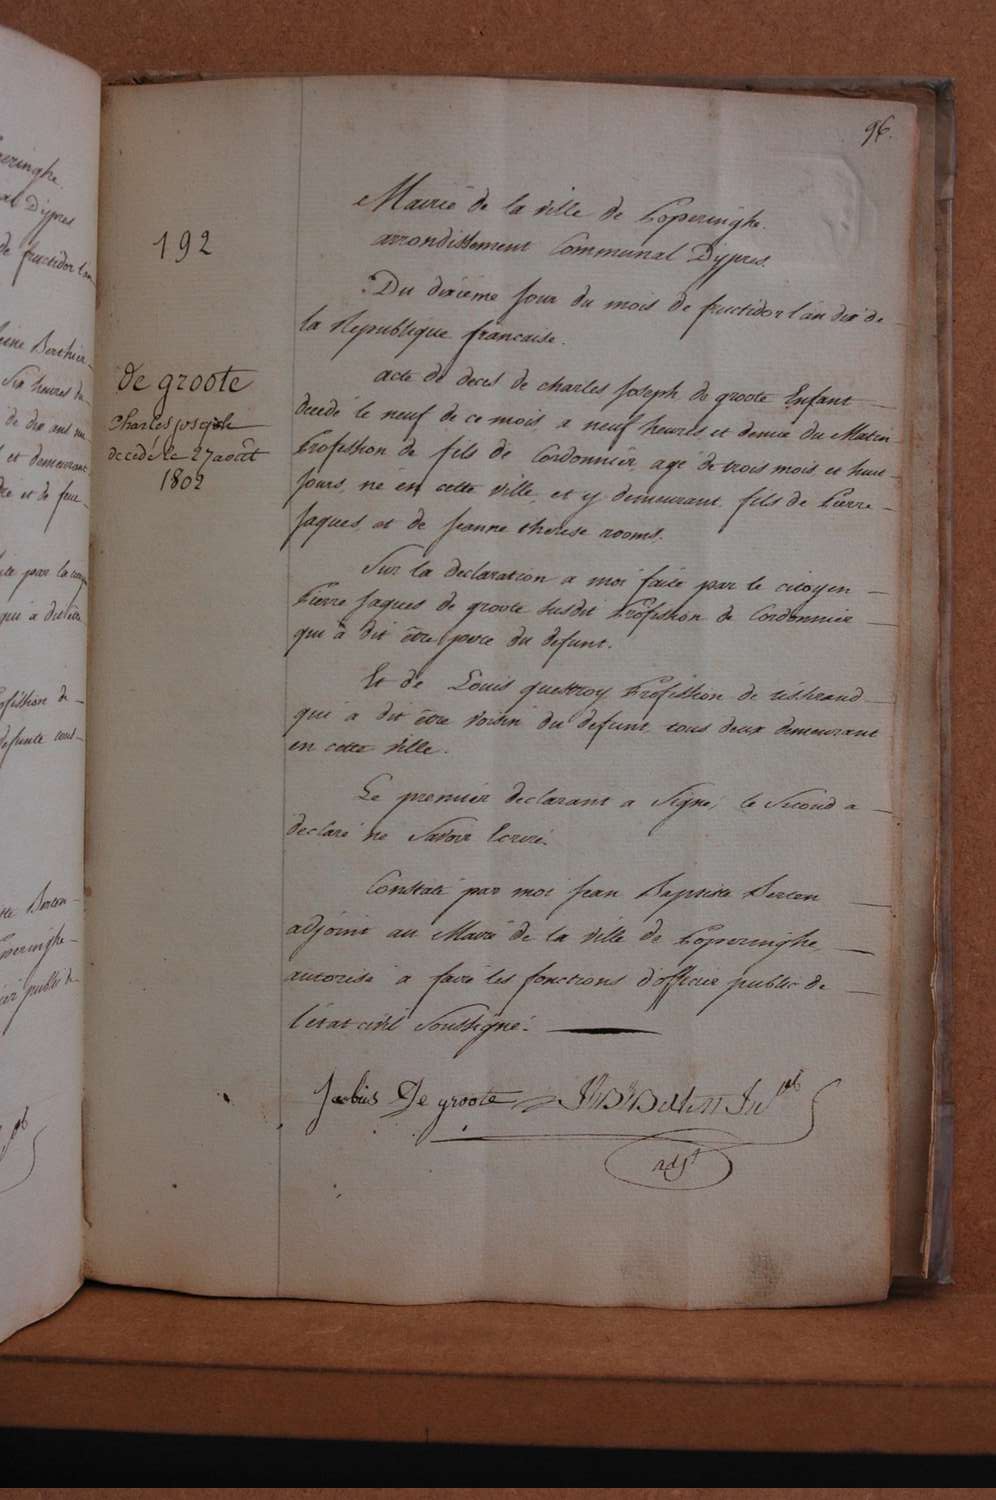 96.
Mairie de la ville de Poperinghe.
arrondissement Communal D'ypres.
192
Du dixieme jour du mois de fructidor l'an dix de
la Republique francaise.
de groote
Charles joseph
decédé le 27 août
1802
acte de deces de charles Joseph de groote Enfant
decedé le neuf de ce mois, a neuf heures et demie du Matin
Profession de fils de Cordonnier, agé de trois mois et huit
Jours, né en cette ville, et y demeurant, fils de Pierre
Jaques, et de Jeanne therese rooms.
Sur la declaration a moi faite par le citoyen
Pierre Jaques de groote susdit Profession de Cordonnier
qui a dit être pere du defunt.
Et de Louis questroy Profession de tisserand
qui a dit être voisin du defunt, tous deux demeurant
en cette ville.
Le premier declarant a Signé, le Second a
declaré ne Savoir Ecrire.
Constaté par moi Jean Baptiste Berten
adjoint au Maire de la ville de Poperinghe,
autorisé a faire les fonctions d'officier public de
l'état civil Soussigné.
Jacobus De groote
adjt
peringhe.
D'ypres
de fructidor l'an
Six heures du
de dix ans
et demeurant
et de feu
qui a dit être
Profession de
defunte tous
Berten
Poperinghe
public de